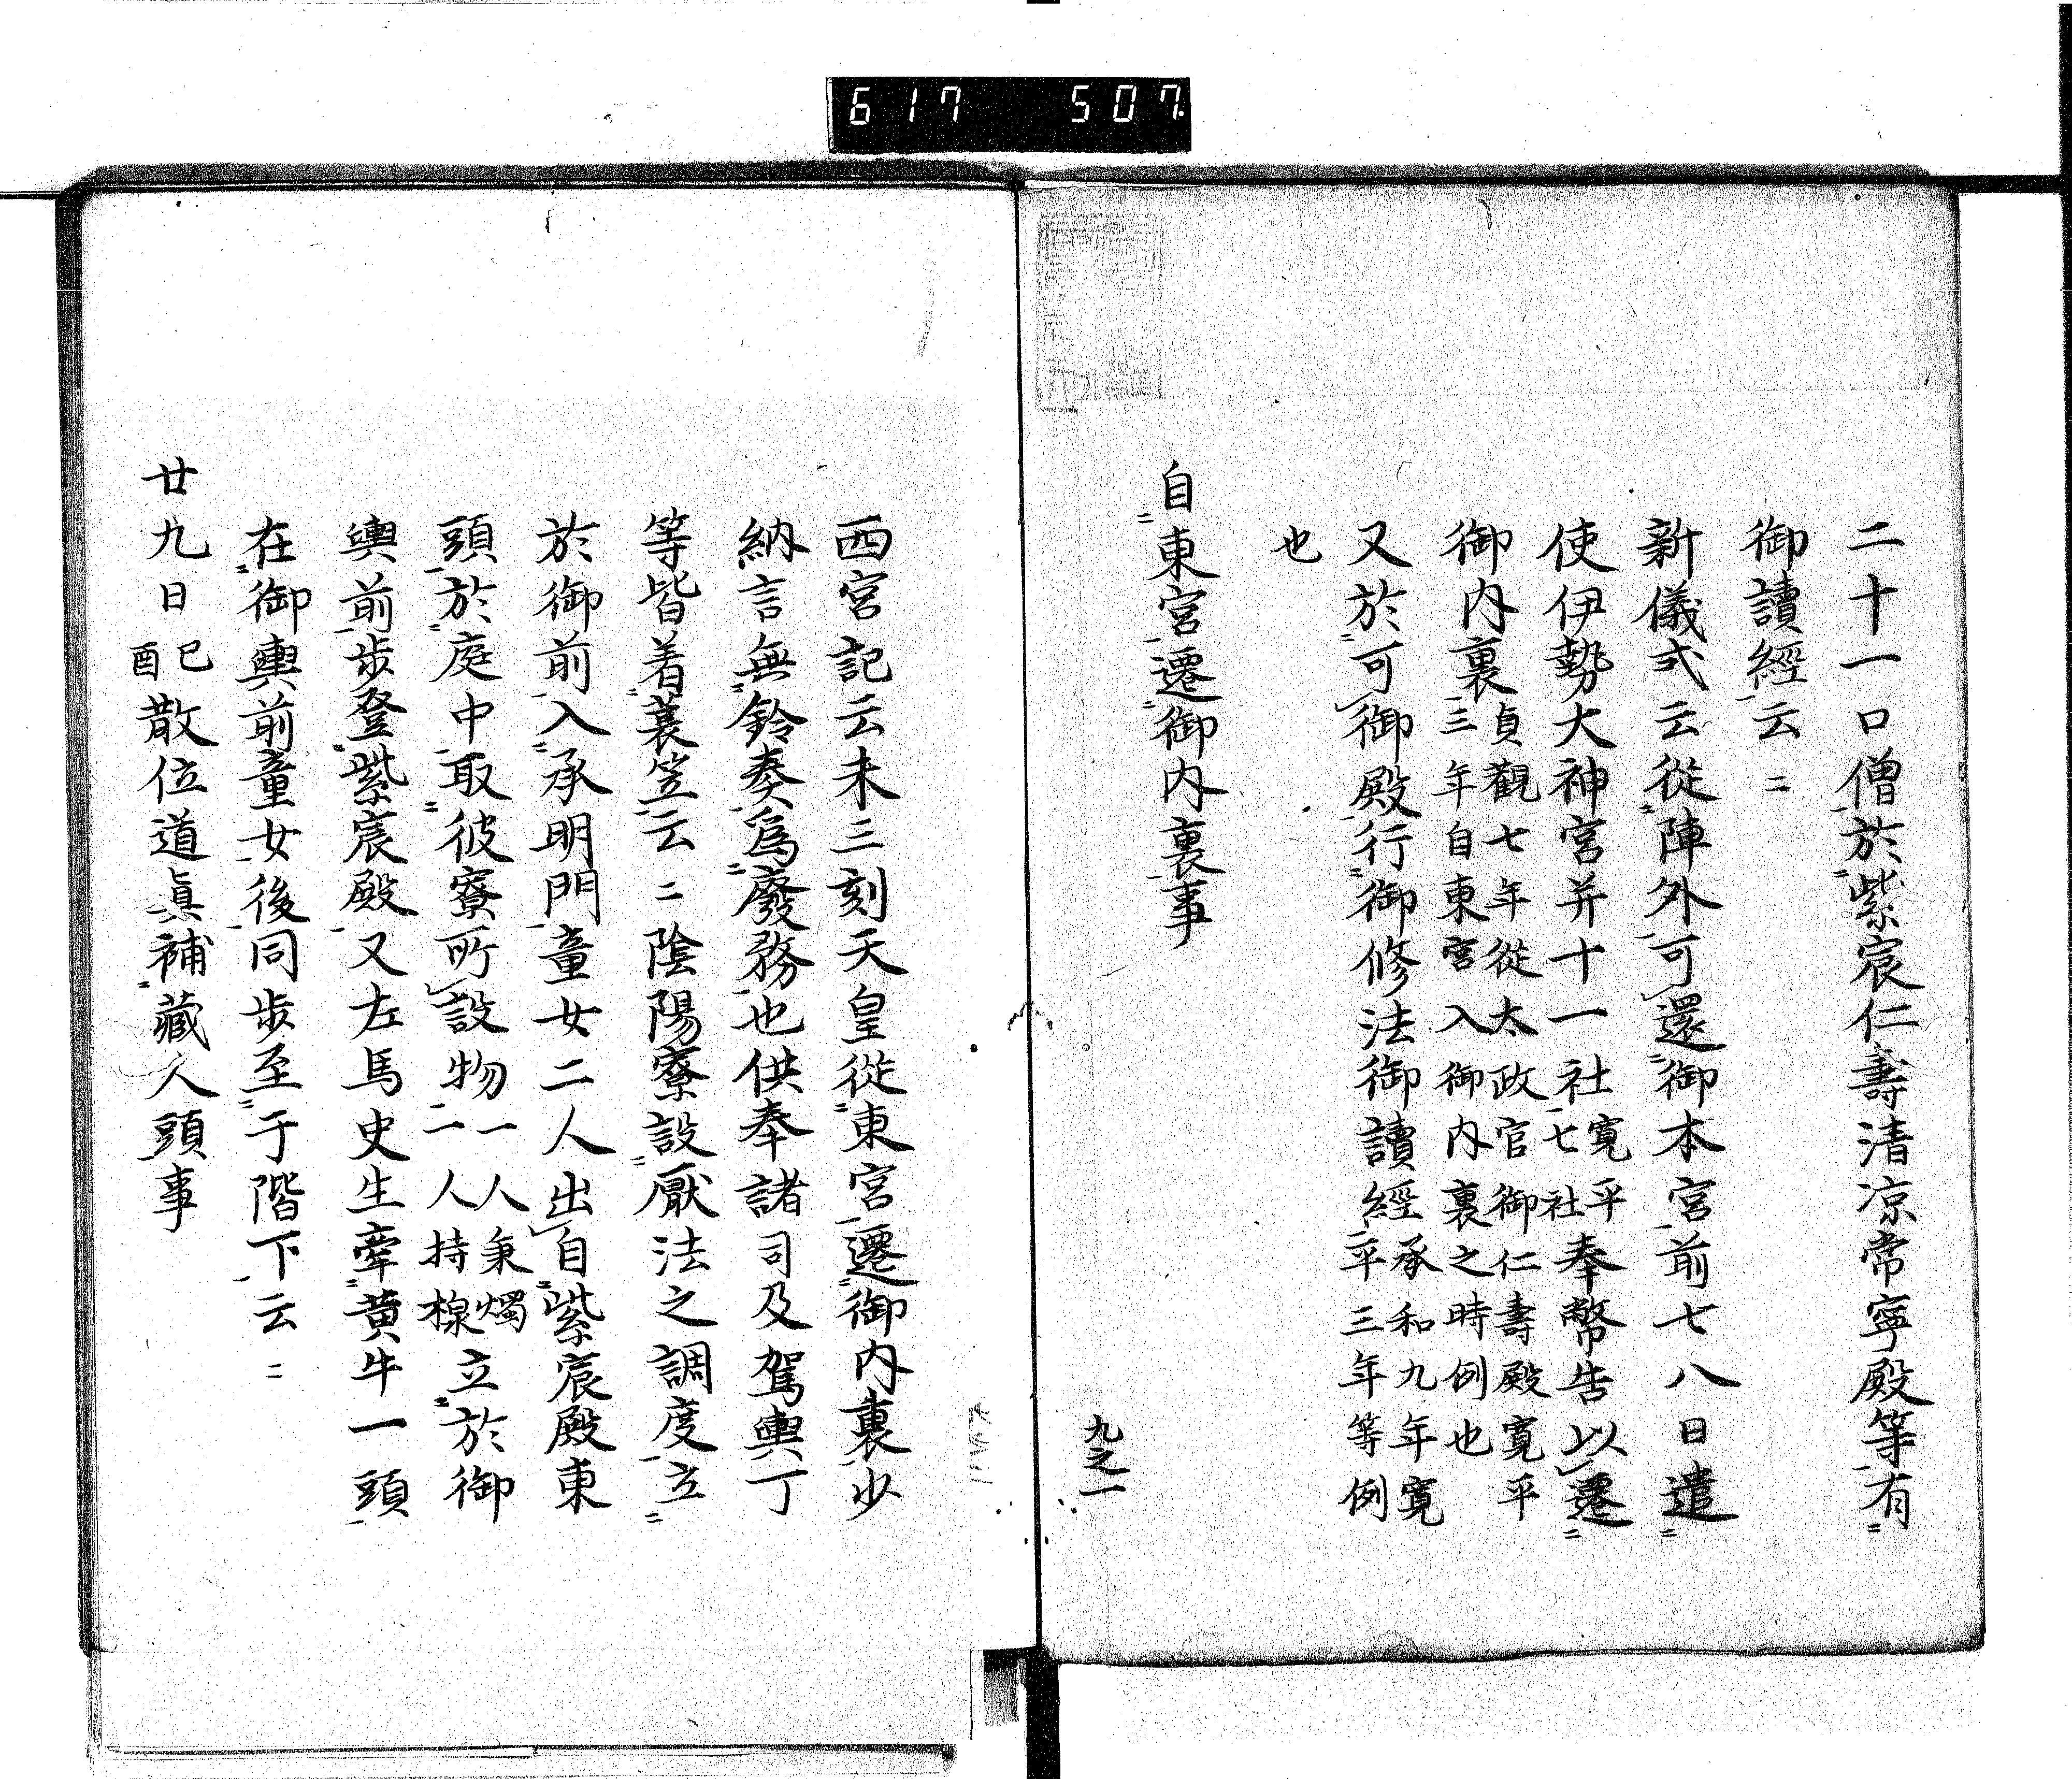 617 507
二十一口僧於紫宸仁壽清凉常寧殿等有
御讀經云〻
新儀式云從陣外可還御本宮前七八日遣
使伊勢大神宮并十一社寛平七社奉幣告以遷
御内裏貞觀七年從太政官御仁壽殿寛平三年自東宮入御内裏之時例也
又於可御殿行御修法御讀經承和九年寛平三年等例
也
自東宮遷御内裏事
九之一
西宮記云未三刻天皇從東宮遷御内裏少
納言無鈴奏爲廢務也供奉諸司及駕輿丁
等皆着蓑笠云〻陰陽寮設厭法之調度立
於御前入承明門童女二人出自紫宸殿東
頭於庭中取彼寮所設物一人秉燭二人持楾立於御
輿前歩登紫宸殿又左馬史生牽黄牛一頭
在御輿前童女後同歩至于階下云〻
廿九日己酉散位道眞補藏人頭事